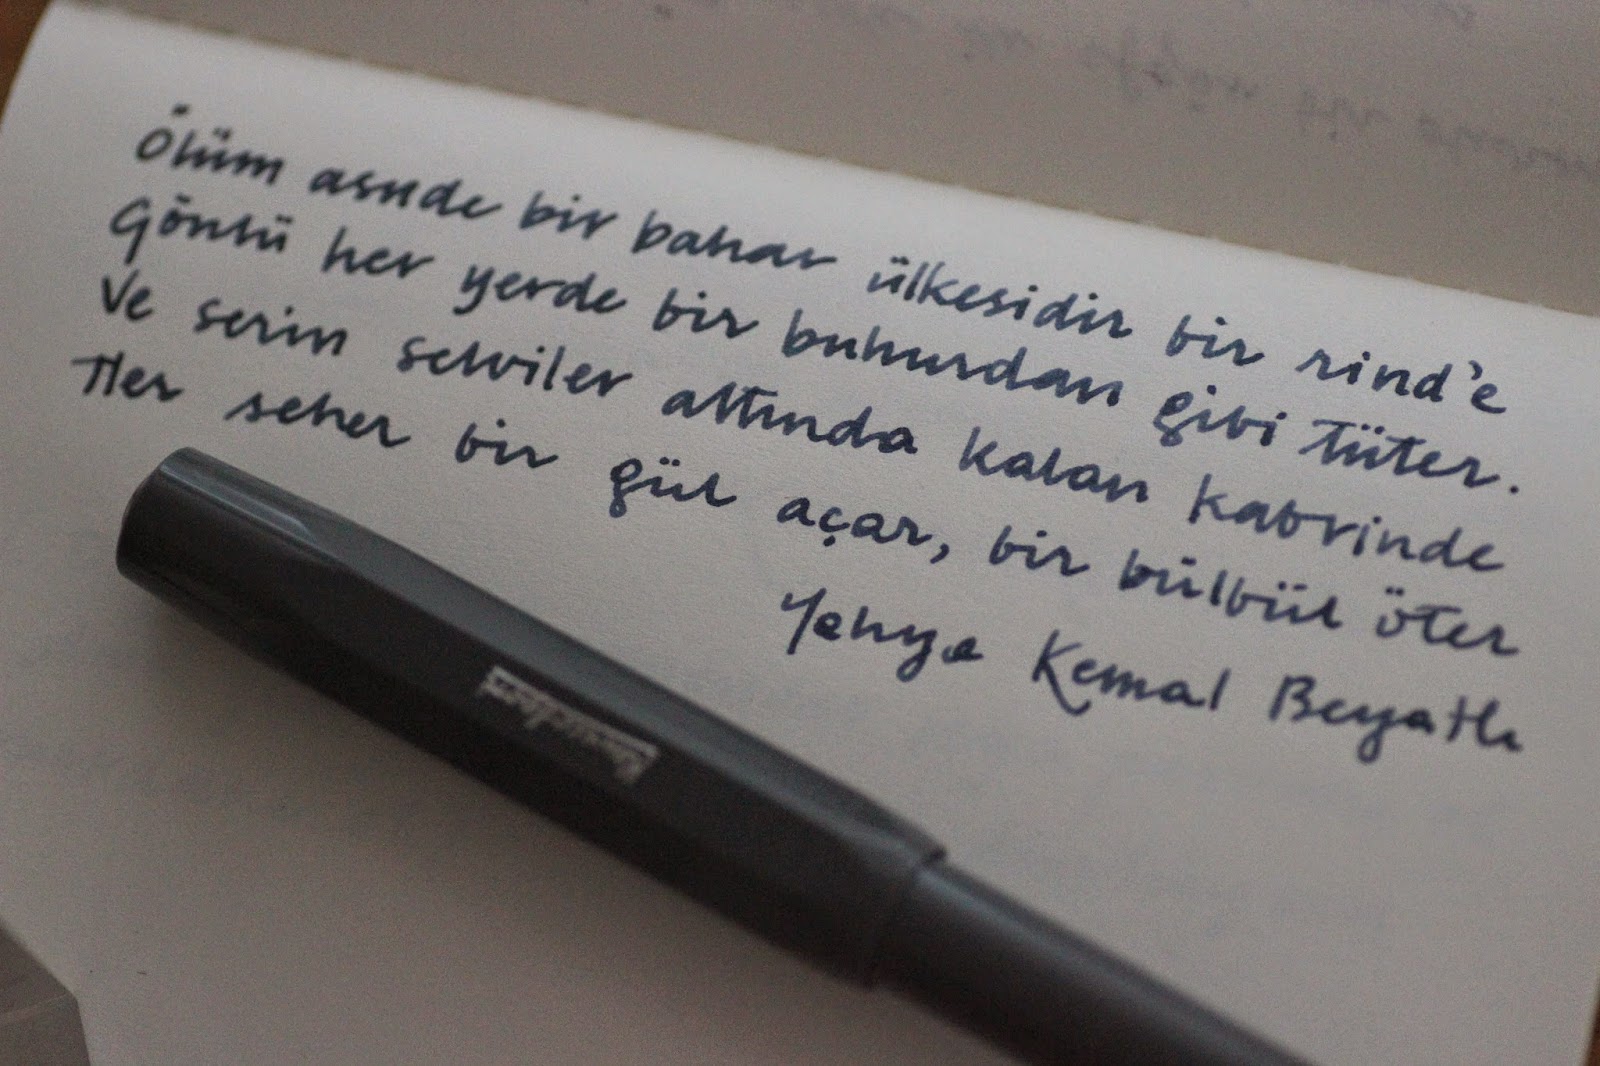 Ölüm asude bir bahar ülkesidir bir rind'e
Gönlü her yerde bir buhurdan gibi tüter.
Ve serin selviler altında kalan kabrinde
Her seher bir gül açar, bir bülbül öter
Yahya Kemal Beyatlı
Kaweco Sport